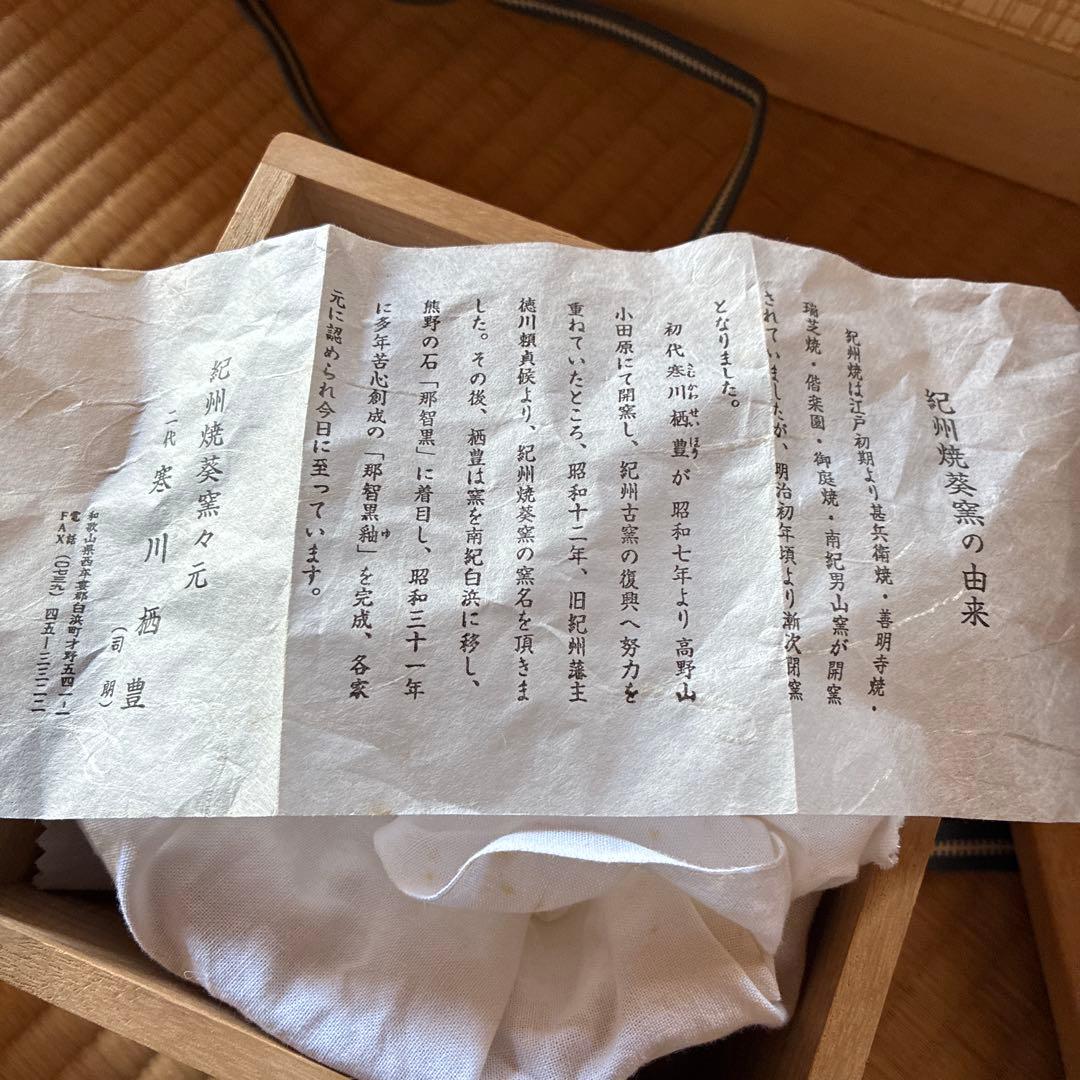 紀州焼葵窯の由来
紀州焼は江戸初期より甚兵衛焼・善明寺焼・
瑞芝焼・偕楽園・御庭焼・南紀男山窯が開窯
されていましたが、明治初年頃より漸次閉窯
となりました。
初代寒川栖豊が昭和七年より高野山
小田原にて開窯し、紀州古窯の復興へ努力を
重ねていたところ、昭和十二年、旧紀州藩主
徳川頼貞候より、紀州焼葵窯の窯名を頂きま
した。その後、栖豊は窯を南紀白浜に移し、
熊野の石「那智黒」に着目し、昭和三十一年
に多年苦心創成の「那智黒釉」を完成、各家
元に認められ今日に至っています。
紀州焼葵窯々元
二代 寒川栖豊
(司朗)
和歌山県西牟婁郡白浜町才野五四一-一
電話
FAX (〇七三九)四五-二三一二